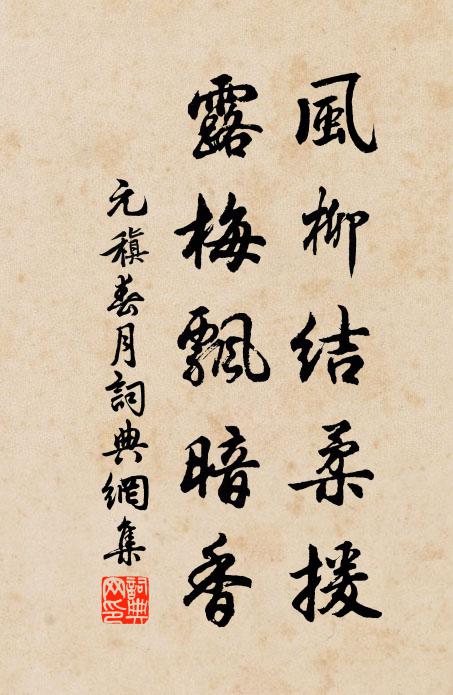 風柳結柔援
露梅飄暗香
元稹春月詞典網集
詞典网印